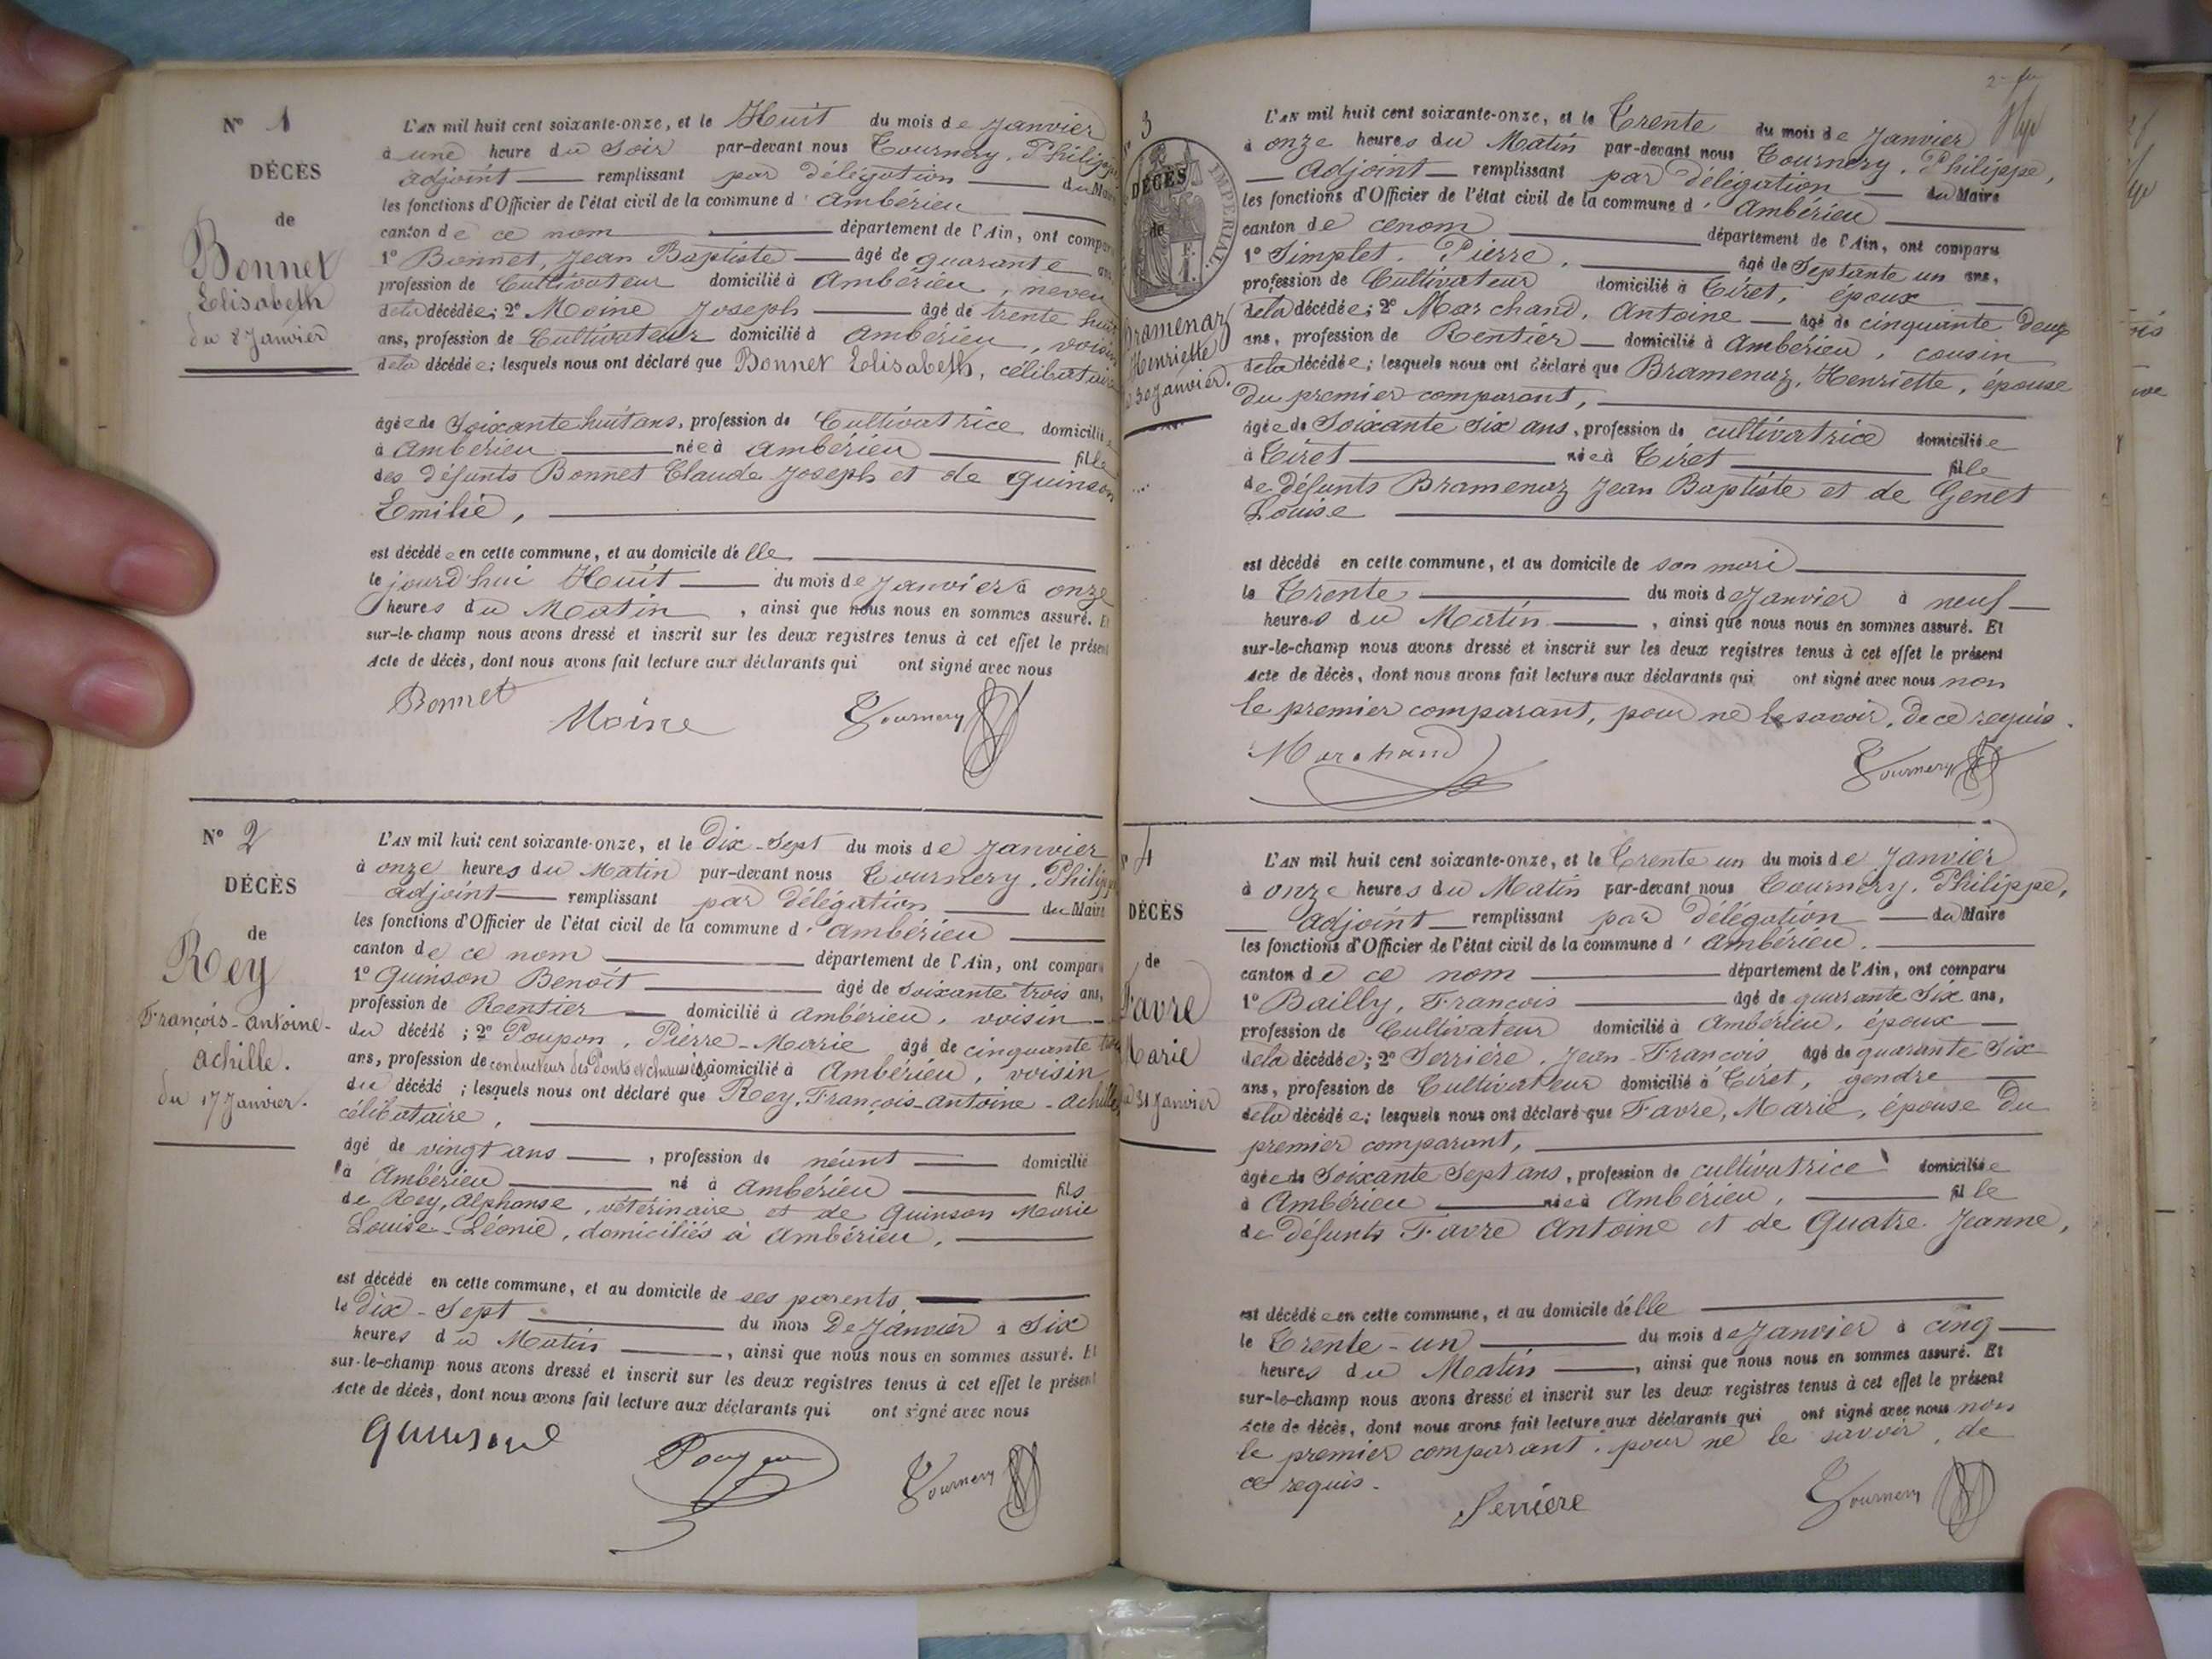 N° 1
DÉCÈS
de
Bonnet
Elisabeth
du 8 Janvier
L'AN mil huit cent soixante-onze, et le Huit du mois de Janvier
à une heure du Soir par-devant nous Tournery, Philippe
adjoint remplissant par délégation du Maire
les fonctions d'Officier de l'état civil de la commune d'Ambérieu
canton de ce nom département de l'Ain, ont comparu
1° Bonnet, Jean Baptiste âgé de quarante ans
profession de Cultivateur domicilié à Ambérieu, neveu
de la décédée; 2° Moine Joseph âgé de trente huit
ans, profession de Cultivateur domicilié à Ambérieu, voisin
de la décédée; lesquels nous ont déclaré que Bonnet Elisabeth, célibataire
âgée de Soixante huit ans, profession de Cultivatrice domiciliée
à Ambérieu née à Ambérieu fille
des défunts Bonnet Claude Joseph et de Quinson
Emilie,
est décédée en cette commune, et au domicile d'elle
le jourd'hui Huit du mois de Janvier à onze
heures du Matin, ainsi que nous nous en sommes assuré. Et
sur-le-champ nous avons dressé et inscrit sur les deux registres tenus à cet effet le présent
Acte de décès, dont nous avons fait lecture aux déclarants qui ont signé avec nous
Bonnet Moine Tournery
N° 2
DÉCÈS
de
Rey
François-Antoine-
Achille.
du 17 Janvier.
L'AN mil huit cent soixante-onze, et le Dix-Sept du mois de Janvier
à onze heures du Matin par-devant nous Tournery, Philippe
adjoint remplissant par délégation du Maire
les fonctions d'Officier de l'état civil de la commune d'Ambérieu
canton de ce nom département de l'Ain, ont comparu
1° Quinson Benoit âgé de Soixante trois ans,
profession de Rentier domicilié à Ambérieu, voisin
du décédé; 2° Poupon, Pierre-Marie âgé de cinquante
ans, profession de conducteur des Ponts et chaussées, domicilié à Ambérieu, voisin
du décédé; lesquels nous ont déclaré que Rey, François-Antoine-Achille
célibataire,
âgé de vingt ans, profession de néant domicilié
à Ambérieu né à Ambérieu fils
de Rey, Alphonse, vétérinaire et de Quinson Marie
Louise-Léonie, domiciliés à Ambérieu,
est décédé en cette commune, et au domicile de ses parents,
le Dix-Sept du mois De Janvier à Six
heures du Matin, ainsi que nous nous en sommes assuré. Et
sur-le-champ nous avons dressé et inscrit sur les deux registres tenus à cet effet le présent
Acte de décès, dont nous avons fait lecture aux déclarants qui ont signé avec nous
Quinson Poupon Tournery
3
DÉCÈS
de
IMPERIAL.
Bramenaz
Henriette
30 Janvier.
L'AN mil huit cent soixante-onze, et le Trente du mois de Janvier
à onze heures du Matin par-devant nous Tournery, Philippe,
Adjoint remplissant par délégation du Maire
les fonctions d'Officier de l'état civil de la commune d'Ambérieu
canton de cenom département de l'Ain, ont comparu
1° Simplet, Pierre, âgé de Septante un ans,
profession de Cultivateur domicilié à Tiret, époux
de la décédée; 2° Marchand, Antoine âgé de cinquante Deux
ans, profession de Rentier domicilié à Ambérieu, cousin
de la décédée; lesquels nous ont déclaré que Bramenaz, Henriette, épouse
du premier comparant,
âgée de Soixante Six ans, profession de cultivatrice domiciliée
à Tiret née à Tiret fille
de défunts Bramenaz Jean Baptiste et de Genet
Louise
est décédé en cette commune, et au domicile de son mari
le Trente du mois de Janvier à neuf
heures du Matin, ainsi que nous nous en sommes assuré. Et
sur-le-champ nous avons dressé et inscrit sur les deux registres tenus à cet effet le présent
Acte de décès, dont nous avons fait lecture aux déclarants qui ont signé avec nous non
le premier comparant, pour ne le savoir, de ce requis.
Marchand Tournery
4
DÉCÈS
de
Favre
Marie
31 Janvier
L'AN mil huit cent soixante-onze, et le Trente un du mois de Janvier
à onze heures du Matin par-devant nous Tournery, Philippe,
Adjoint remplissant par délégation du Maire
les fonctions d'Officier de l'état civil de la commune d'Ambérieu.
canton de ce nom département de l'Ain, ont comparu
1° Bailly, François âgé de quarante Six ans,
profession de Cultivateur domicilié à Ambérieu, époux
de la décédée; 2° Serrière, Jean-François, âgé de quarante Six
ans, profession de Cultivateur domicilié à Tiret, gendre
de la décédée; lesquels nous ont déclaré que Favre, Marie, épouse Du
premier comparant,
âgée de Soixante Sept ans, profession de cultivatrice domiciliée
à Ambérieu née à Ambérieu, fille
de défunts Favre Antoine et de Quatre Jeanne,
est décédée en cette commune, et au domicile d'elle
le Trente-un du mois de Janvier à cinq
heures du Matin, ainsi que nous nous en sommes assuré. Et
sur-le-champ nous avons dressé et inscrit sur les deux registres tenus à cet effet le présent
Acte de décès, dont nous avons fait lecture aux déclarants qui ont signé avec nous non
le premier comparant, pour ne le savoir, de
ce requis.
Serriere Tournery